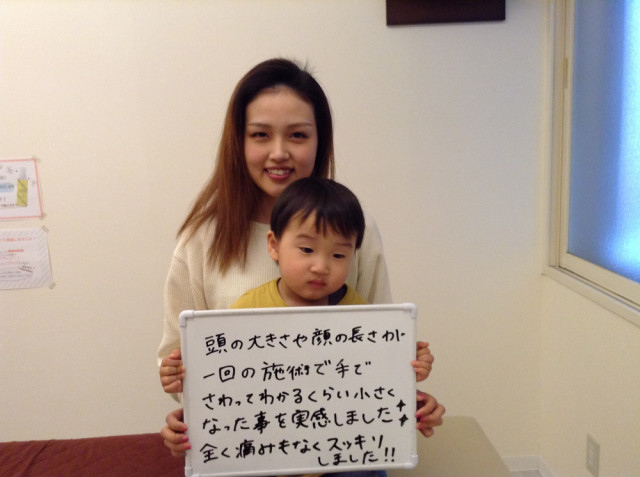 頭の大きさや顔の長さが
一回の施術で手で
さわってわかるくらい小さく
なった事を実感しました
全く痛みもなくスッキリ
しました!!